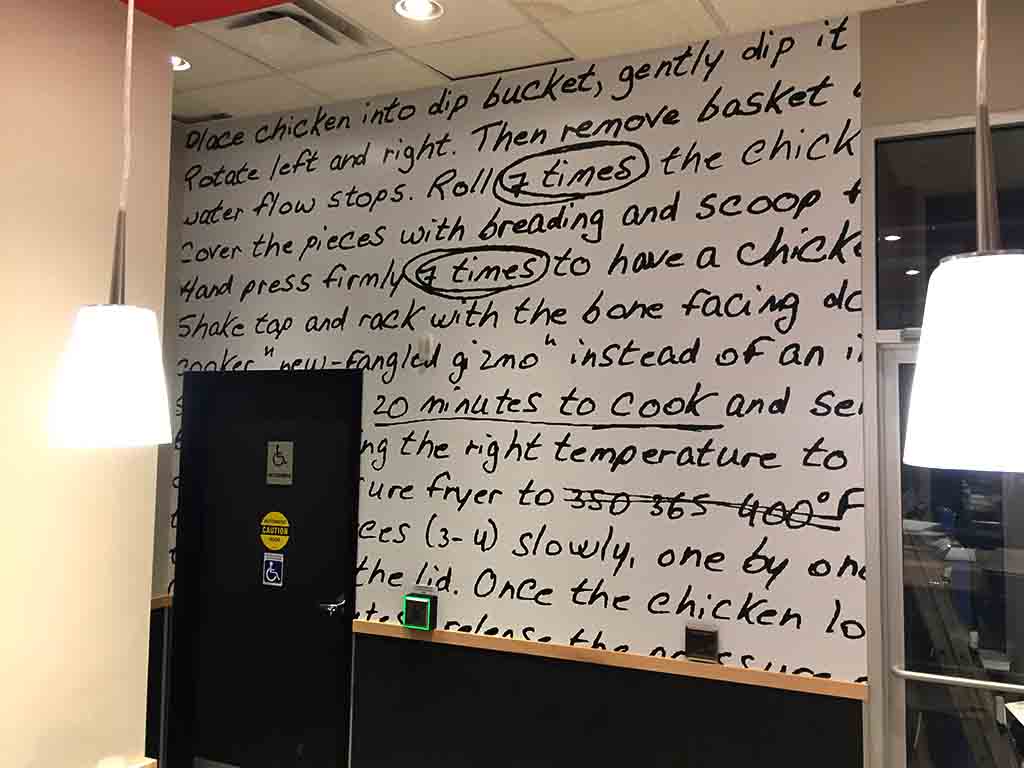 Place chicken into dip bucket, gently dip it
Rotate left and right. Then remove basket
water flow stops. Roll 7 times the chick
Cover the pieces with breading and scoop
Hand press firmly 7 times to have a chicke
Shake tap and rack with the bone facing do
cooker "new-fangled gizmo" instead of an
20 minutes to cook and se
ng the right temperature to
ure fryer to 350 365 400°F
ces (3-4) slowly, one by one
the lid. Once the chicken lo
utes release the pressure
CAUTION